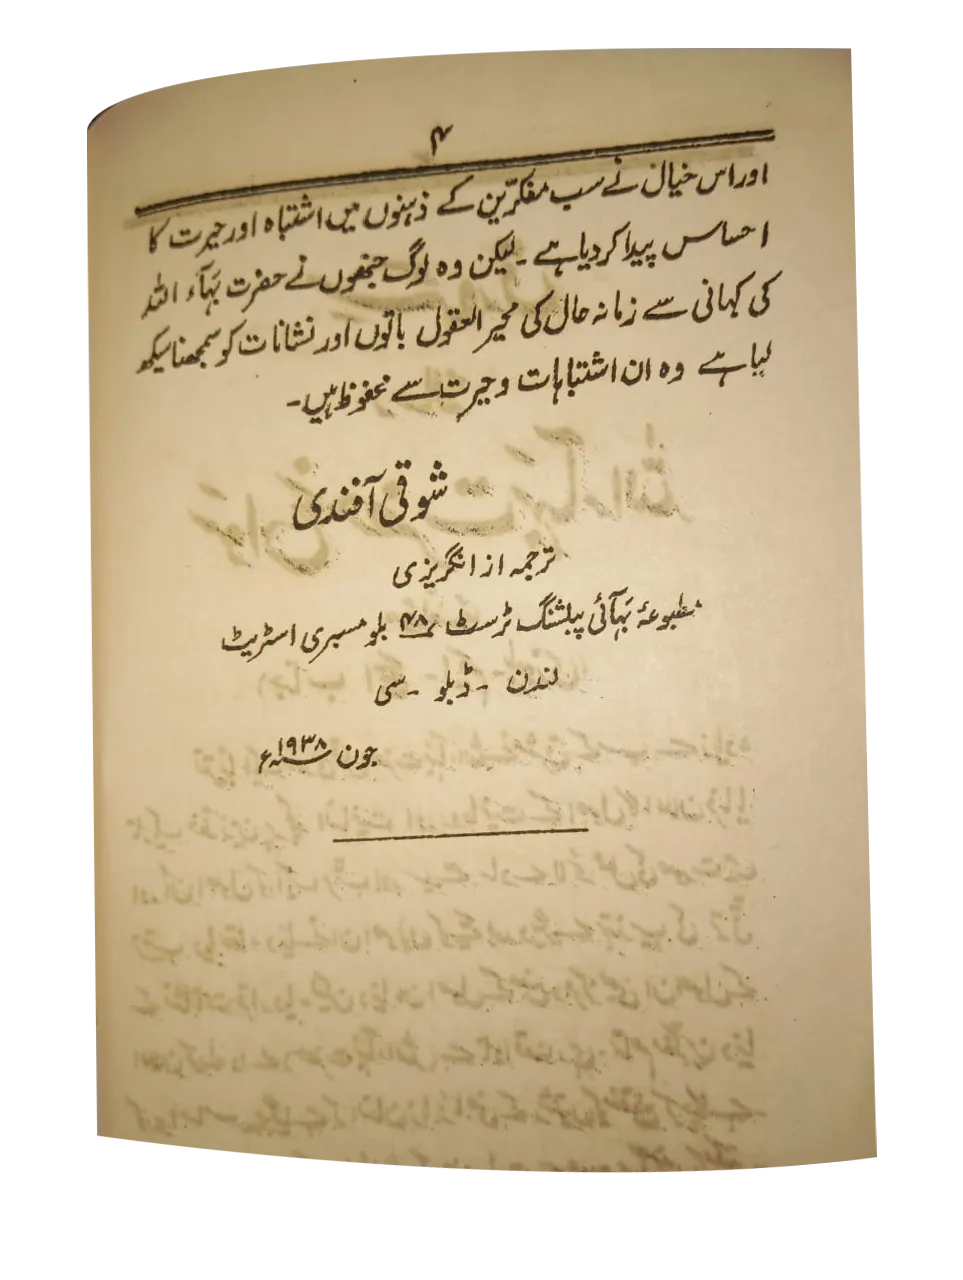 ۴
اور اس خیال نے سب مفکرّین کے ذہنوں میں اشتباہ اور حیرت کا
احساس پیدا کردیا ہے ۔ لیکن وہ لوگ جنھوں نے حضرت بہآء اللہ
کی کہانی سے زمانہ حال کی محیر العقول باتوں اور نشانات کو سمجھنا سیکھ
لیا ہے وہ ان اشتباہات و حیرت سے محفوظ ہیں ۔
شوقی آفندی
ترجمہ از انگریزی
مطبوعۂ بہآئی پبلشنگ ٹرسٹ ۴۸ بلومسبری اسٹریٹ
لندن ۔ ڈبلو ۔ سی
جون ۱۹۳۸ء